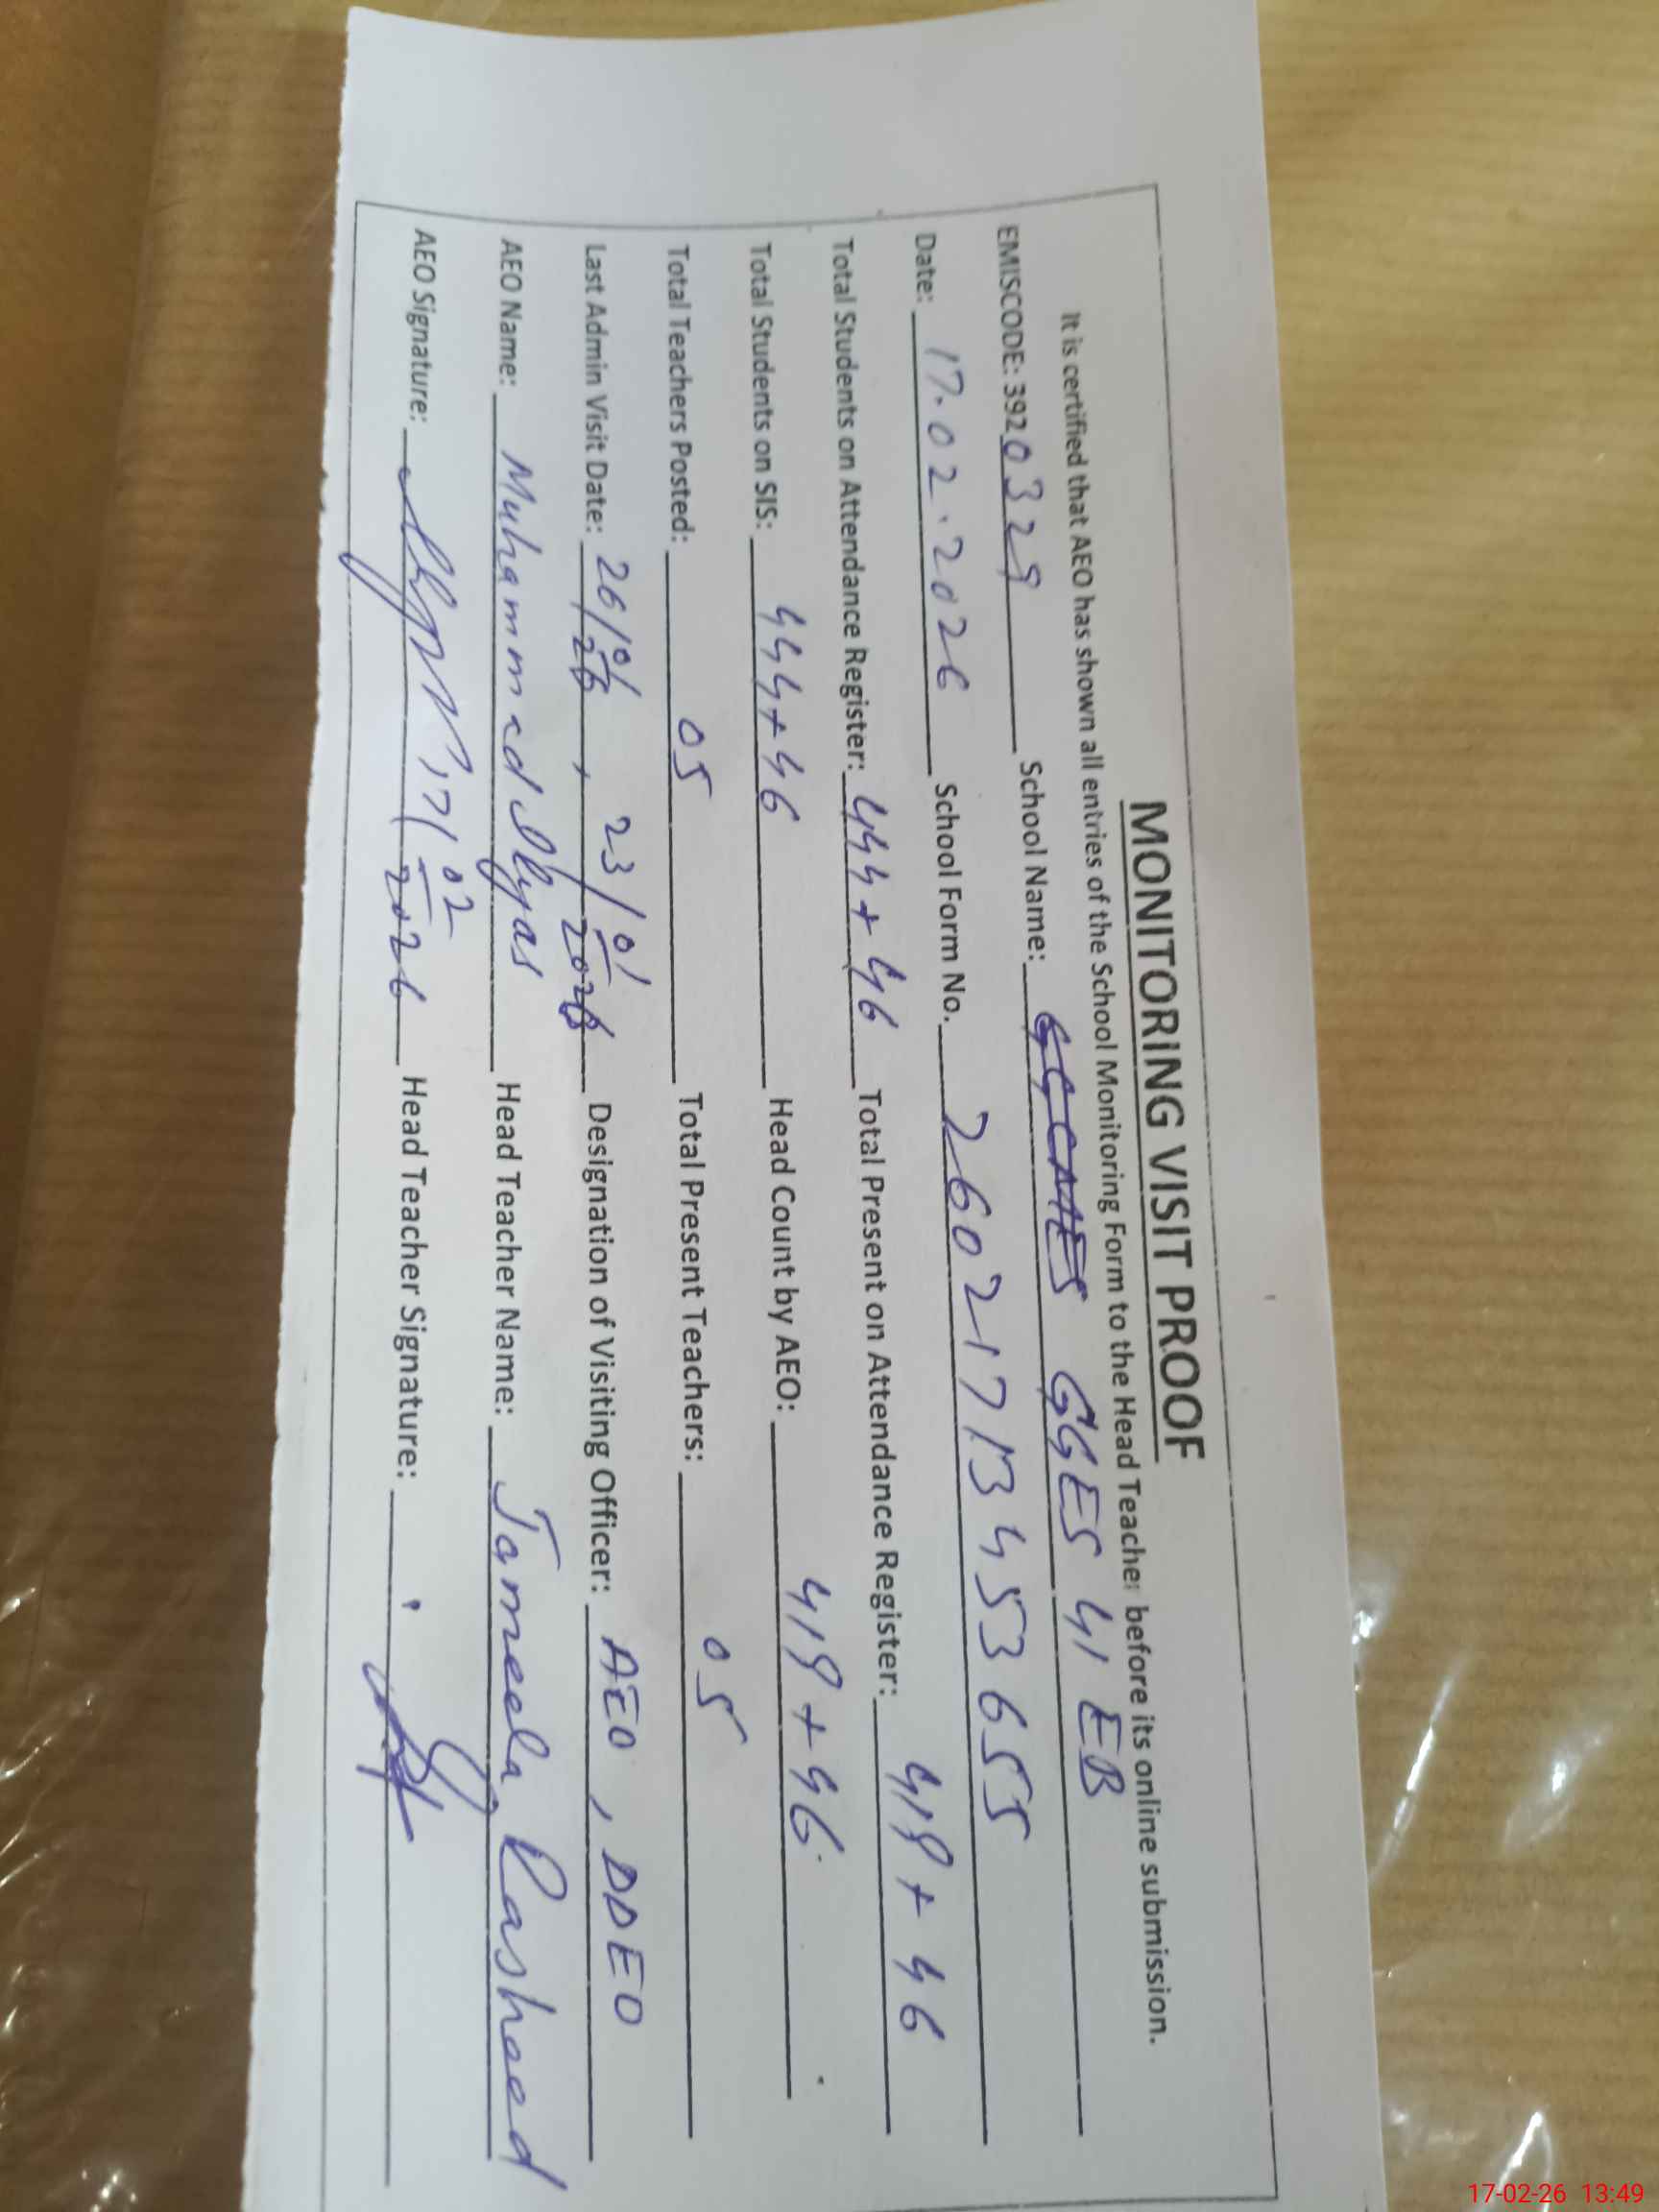 MONITORING VISIT PROOF
It is certified that AEO has shown all entries of the School Monitoring Form to the Head Teacher before its online submission.
EMISCODE: 3920329 School Name: GGES 41 EB
Date: 17.02.2026 School Form No. 260217134533655
Total Students on Attendance Register: 444+46 Total Present on Attendance Register: 419+46
Total Students on SIS: 444+46 Head Count by AEO: 419+46
Total Teachers Posted: 05 Total Present Teachers: 05
Last Admin Visit Date: 26/01/26, 23/01/2026 Designation of Visiting Officer: AEO, DDEO
AEO Name: Muhammad Ilyas Head Teacher Name: Jameela Rasheed
AEO Signature: 17/02/2026 Head Teacher Signature:
17-02-26 13:49